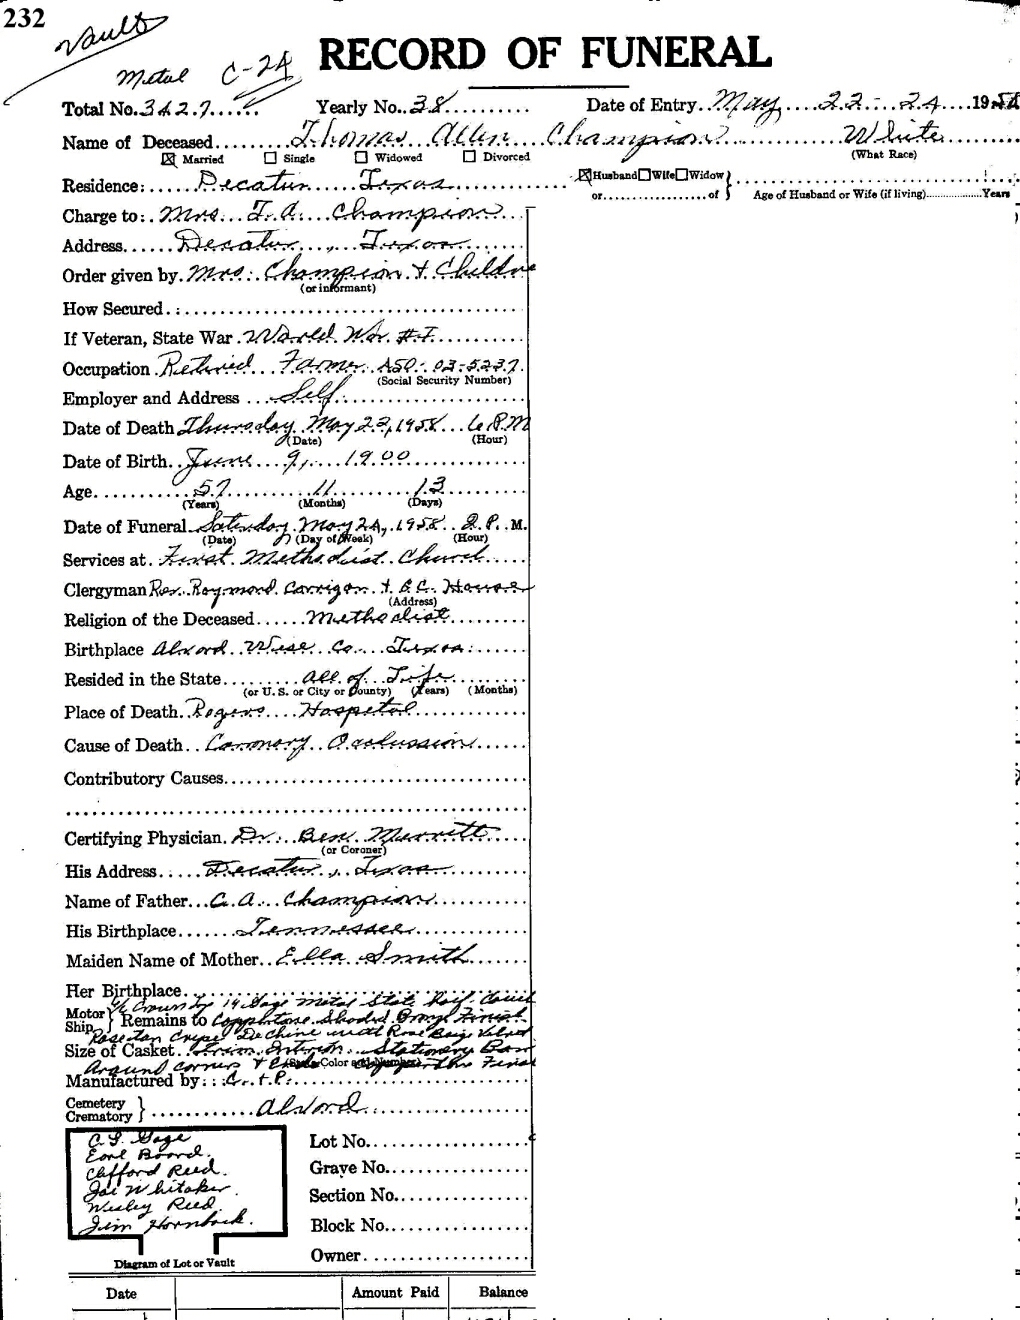 232
Vault
Metal C-24
RECORD OF FUNERAL
Total No. 3427 Yearly No. 38 Date of Entry May 22 - 24 1958
Name of Deceased Thomas Allen Champion White
☒ Married ☐ Single ☐ Widowed ☐ Divorced (What Race)
Residence: Decatur Texas ☒ Husband ☐ Wife ☐ Widow }
or of } Age of Husband or Wife (if living) Years
Charge to: Mrs T. A. Champion
Address Decatur, Texas
Order given by Mrs. Champion + Childre
(or informant)
How Secured
If Veteran, State War World War #I
Occupation Retired Farmer 450-03-5237
(Social Security Number)
Employer and Address Self
Date of Death Thursday May 22, 1958 6 P.M
(Date) (Hour)
Date of Birth June 9, 1900
Age 57 11 13
(Years) (Months) (Days)
Date of Funeral Saturday May 24, 1958 2 P. M.
(Date) (Day of Week) (Hour)
Services at First Methodist Church
Clergyman Rev. Raymond Carrigan + B.C. House
(Address)
Religion of the Deceased Methodist
Birthplace Alvord Wise Co. Texas
Resided in the State all of Life
(or U. S. or City or County) (Years) (Months)
Place of Death Rogers Hospital
Cause of Death Coronary Occlussion
Contributory Causes
Certifying Physician Dr. Ben Merritt
(or Coroner)
His Address Decatur, Texas
Name of Father C. A. Champion
His Birthplace Tennessee
Maiden Name of Mother Ella Smith
Her Birthplace
19 Gage Metal State
Motor Ship } Remains to Copprtone Shaded Bronze Finish
Rosetan Crepe De Chine with Rose Beig Velvet
Size of Casket Trim Interior Stationary Bar
(State Color and Number)
Around corners + Ends Finish
Manufactured by: C. + P.
Cemetery Crematory } Alvord
C. S. Gage
Earl Board
Clifford Reed
Joe Whitaker
Wesley Reed
Jim Hornback
Diagram of Lot or Vault
Lot No.
Grave No.
Section No.
Block No.
Owner
Date Amount Paid Balance